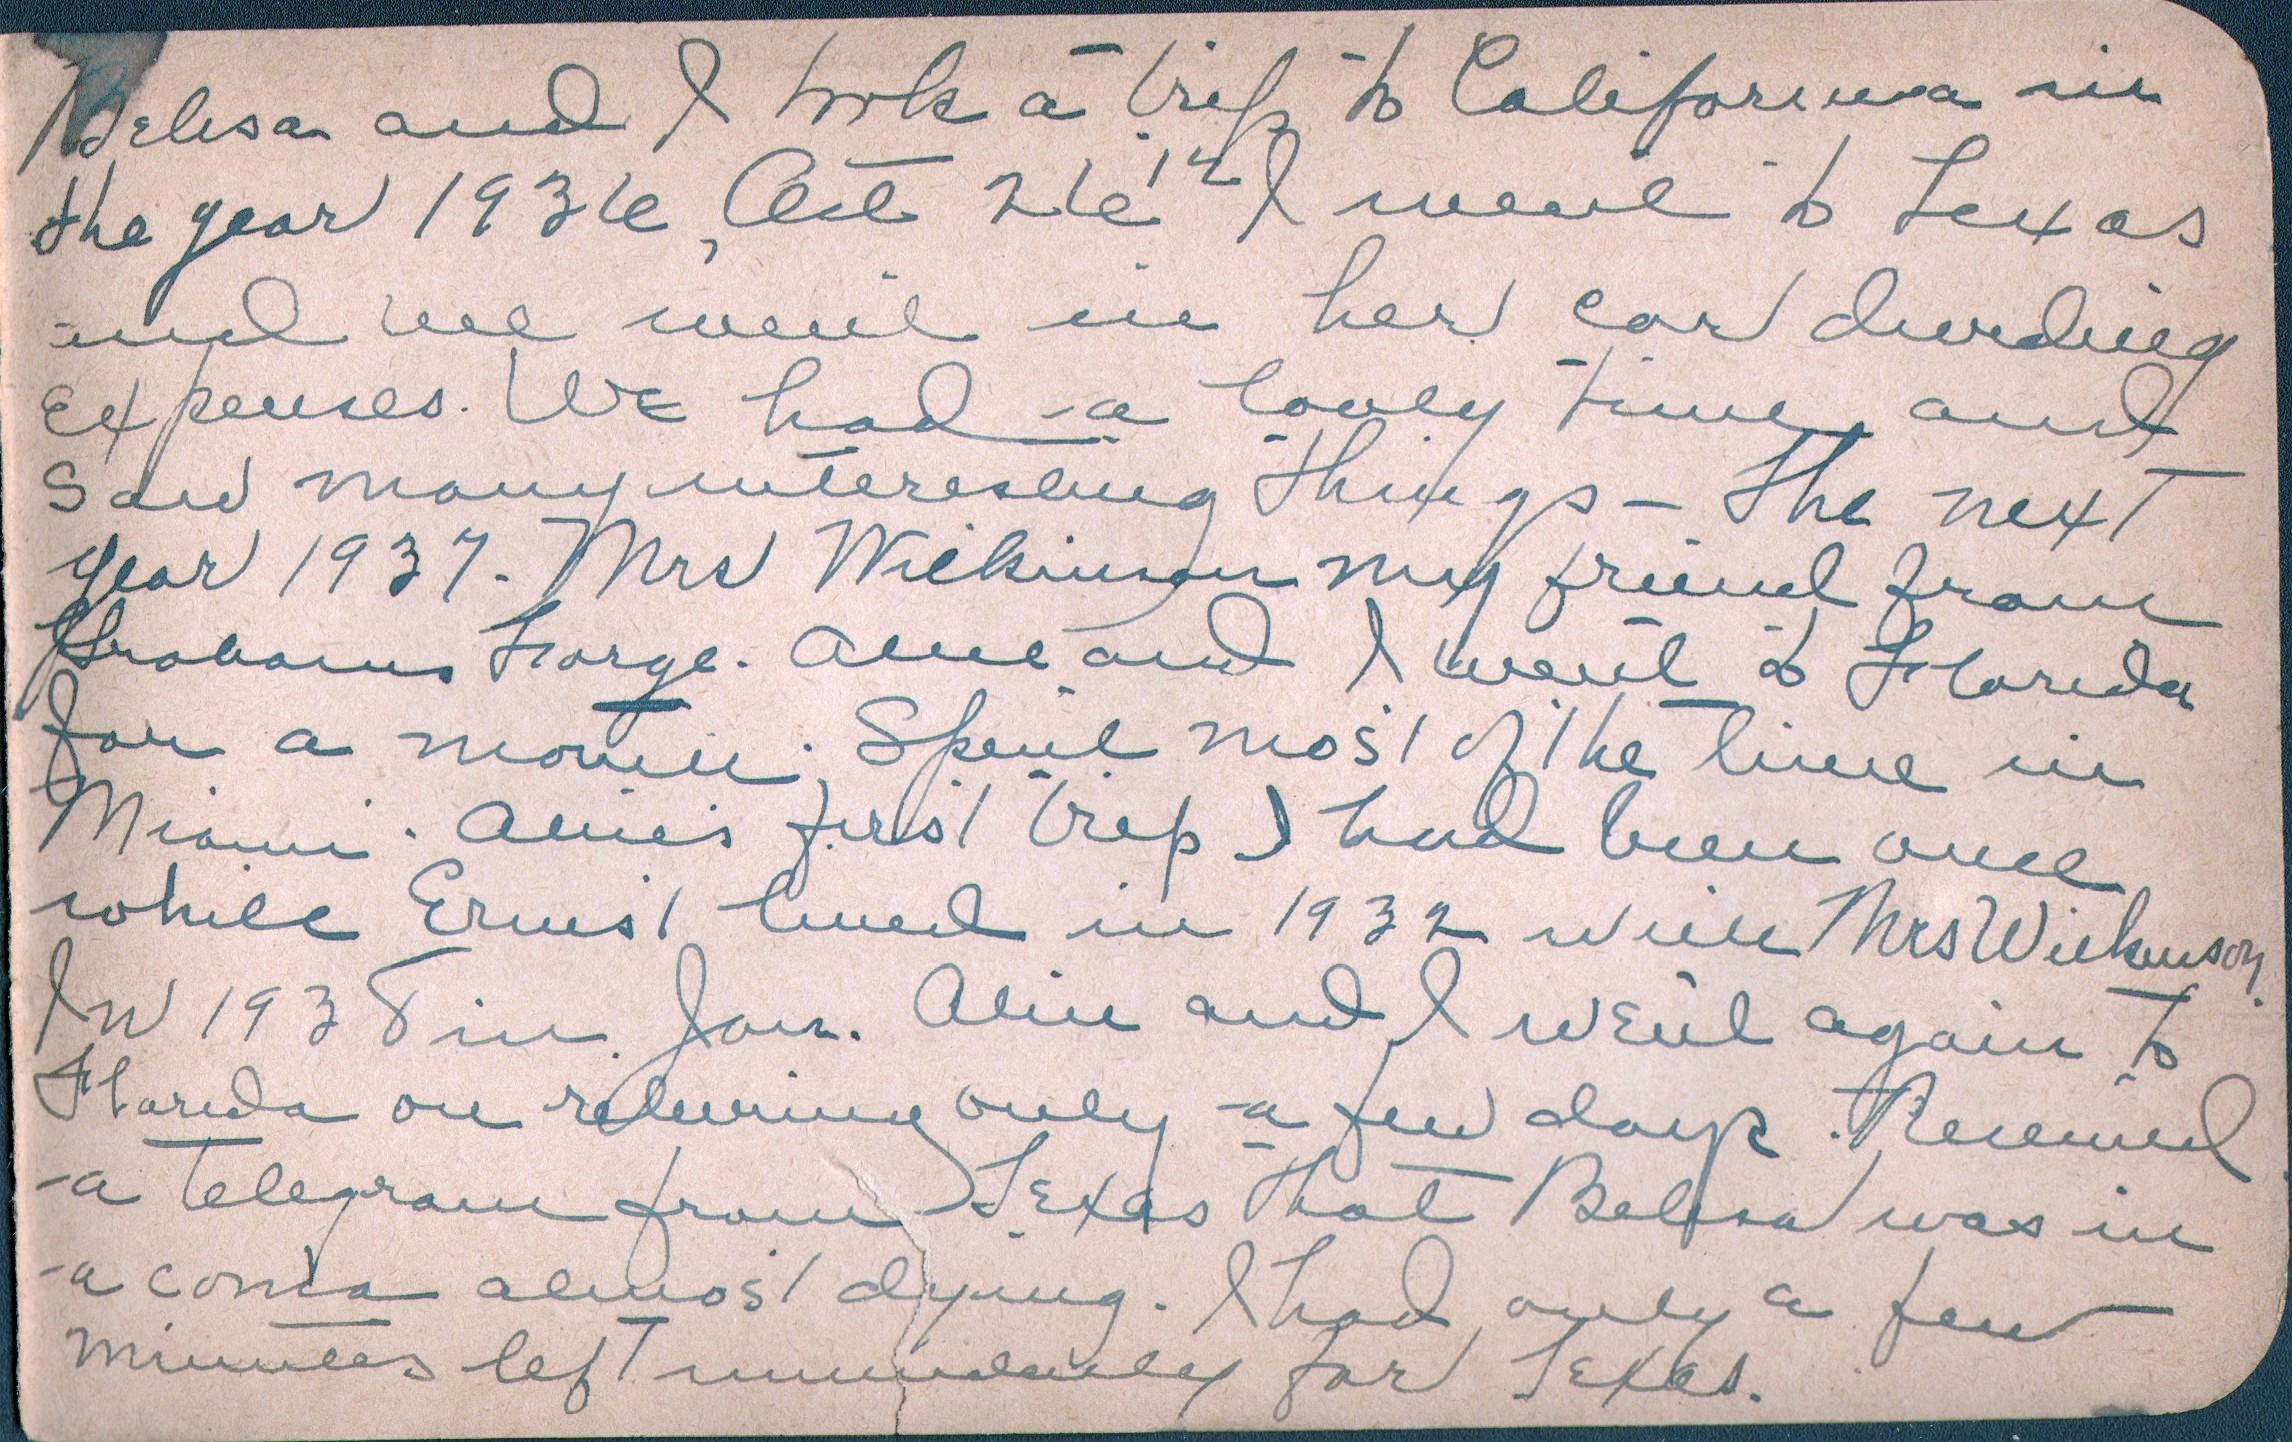 Belva and I took a trip to California in
the year 1936, Oct 26th I went to Texas
and we went in her car dividing
Expenses. We had a lovely time and
Saw many interesting things - the next
year 1937. Mrs Wilkinson my friend from
Grahams Forge. Aline and I went to Florida
for a month. Spent most of the time in
Miami. Alines first trip I had been once
while Ernest lived in 1932 with Mrs Wilkinson.
In 1938 in Jan. Aline and I went again to
Florida on returning only a few days. Received
a telegram from Texas that Belva was in
a coma almost dying. I had only a few
minutes left immediately for Texas.